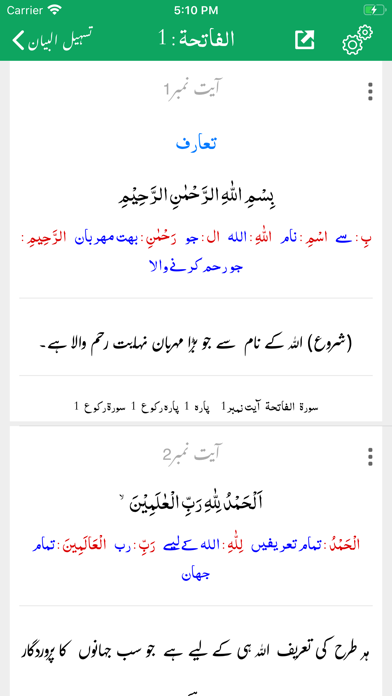 Carrier 5:10 PM
تسہیل البیان الفاتحة : 1
آیت نمبر 1
تعارف
بِسْمِ اللهِ الرَّحْمٰنِ الرَّحِيْمِ
بِ: سے اسْمِ: نام اللهِ: الله ال: جو رَحْمٰنِ: بہت مہربان الرَّحِيمِ:
جو رحم کرنے والا
(شروع) اللہ کے نام سے جو بڑا مہربان نہایت رحم والا ہے۔
سورة الفاتحة آیت نمبر 1 پارہ 1 پارہ رکوع 1 سورۃ رکوع 1
آیت نمبر 2
اَلْحَمْدُ لِلّٰهِ رَبِّ الْعٰلَمِيْنَ ۙ
الْحَمْدُ: تمام تعریفیں لِلّٰهِ: اللہ کے لیے رَبِّ: رب الْعَالَمِينَ: تمام
جہان
ہر طرح کی تعریف اللہ ہی کے لیے ہے جو سب جہانوں کا پروردگار